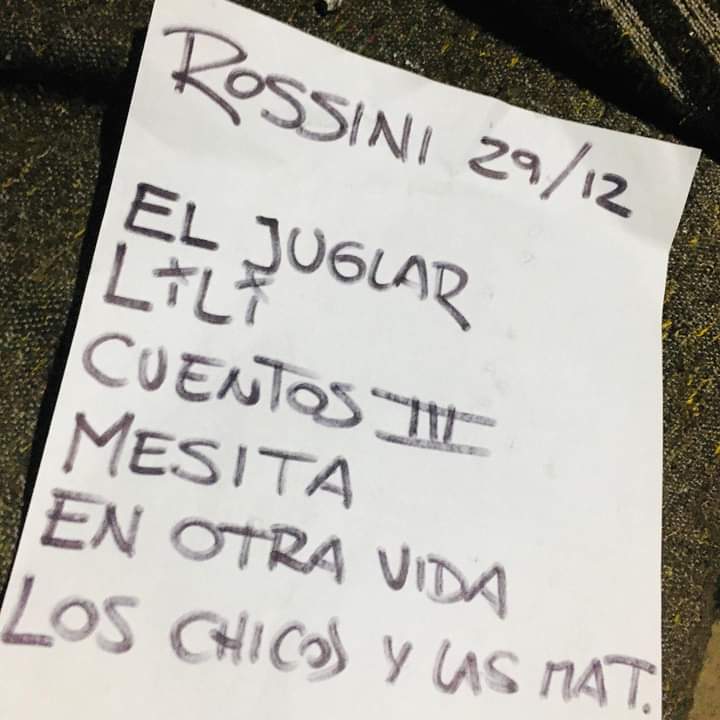 ROSSINI 29/12
EL JUGLAR
LILI
CUENTOS III
MESITA
EN OTRA VIDA
LOS CHICOS Y LAS MAT.